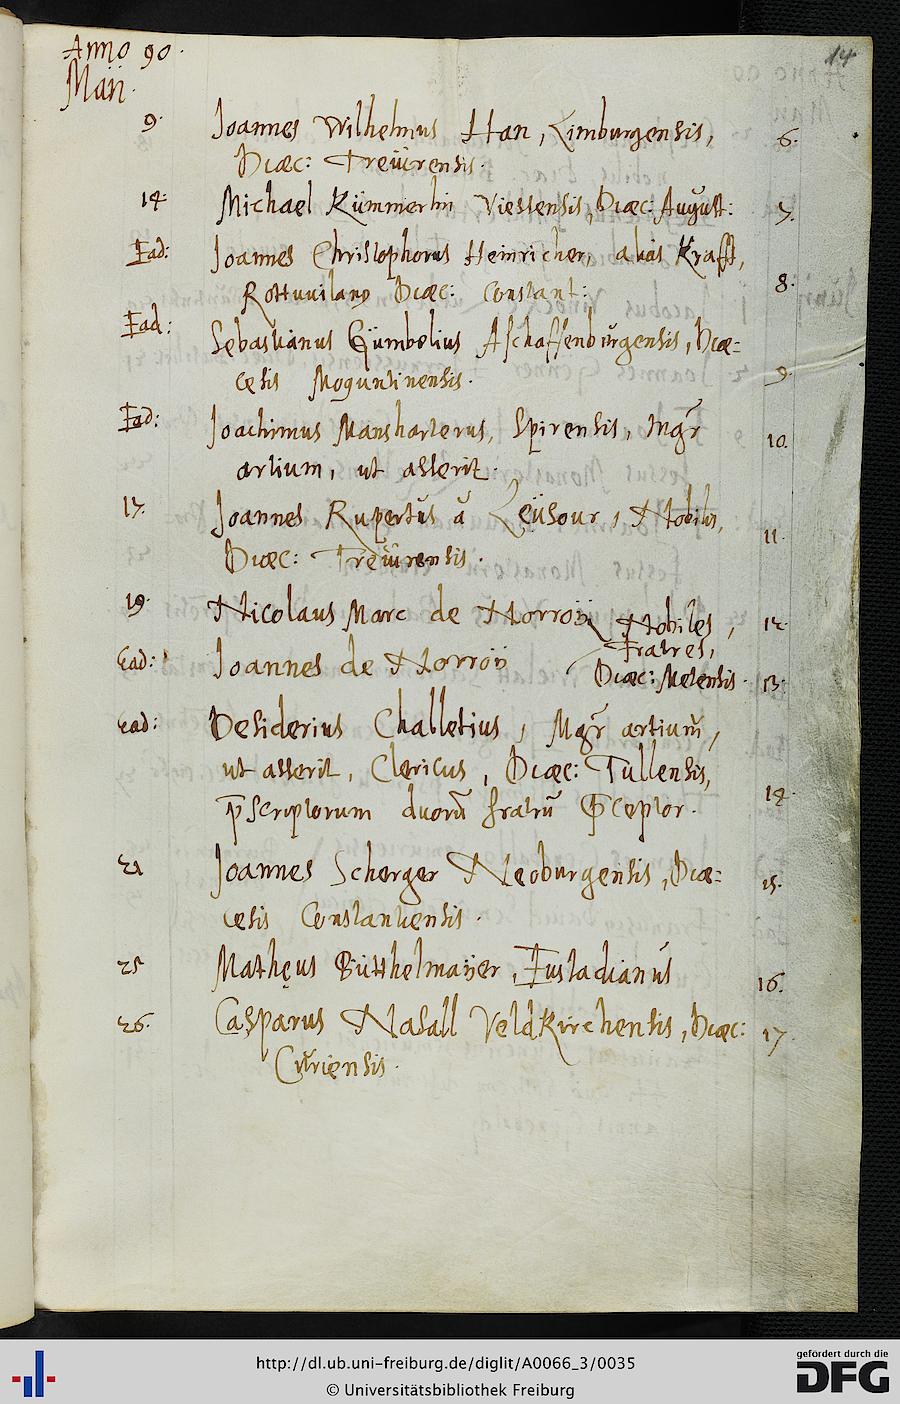 14
Anno 90.
Maii.
9. Joannes Wilhelmus Han, Limburgensis, 6.
Diœc: Treuirensis.
14. Michael Kümmerlin Viessensis, Diœc: August: 7.
Ead: Joannes Christophorus Heinricher, alias Krafft,
Rottuuilanꝰ Diœc: Constant: 8.
Ead: Sebastianus Gümbelius Aschaffenburgensis, Diœ=
cesis Moguntinensis. 9.
Ead: Joachimus Mansharterus, Spirensis, Mgr̃ 10.
artium, ut asserit.
17. Joannes Rupertus á Zeüsour, Nobilis, 11.
Diœc: Treuirensis.
19. Nicolaus Marc de Norroÿ Nobiles, 12.
Fratres,
Ead: Joannes de Norroÿ Diœc: Metensis. 13.
Ead: Desiderius Challetius, Mgr̃ artium,
ut asserit, Clericus, Diœc: Tullensis, 14.
p̄scriptorum duorū fratrū P̄ceptor.
21 Joannes Scherger Neoburgensis, Diœ= 15.
cesis Constantiensis.
25 Mathęus Büthelmaÿer, Eustadianus 16.
26. Casparus Nasall Veldkirchensis, Diœc: 17.
Curiensis.
http://dl.ub.uni-freiburg.de/diglit/A0066_3/0035
© Universitätsbibliothek Freiburg
gefördert durch die
DFG